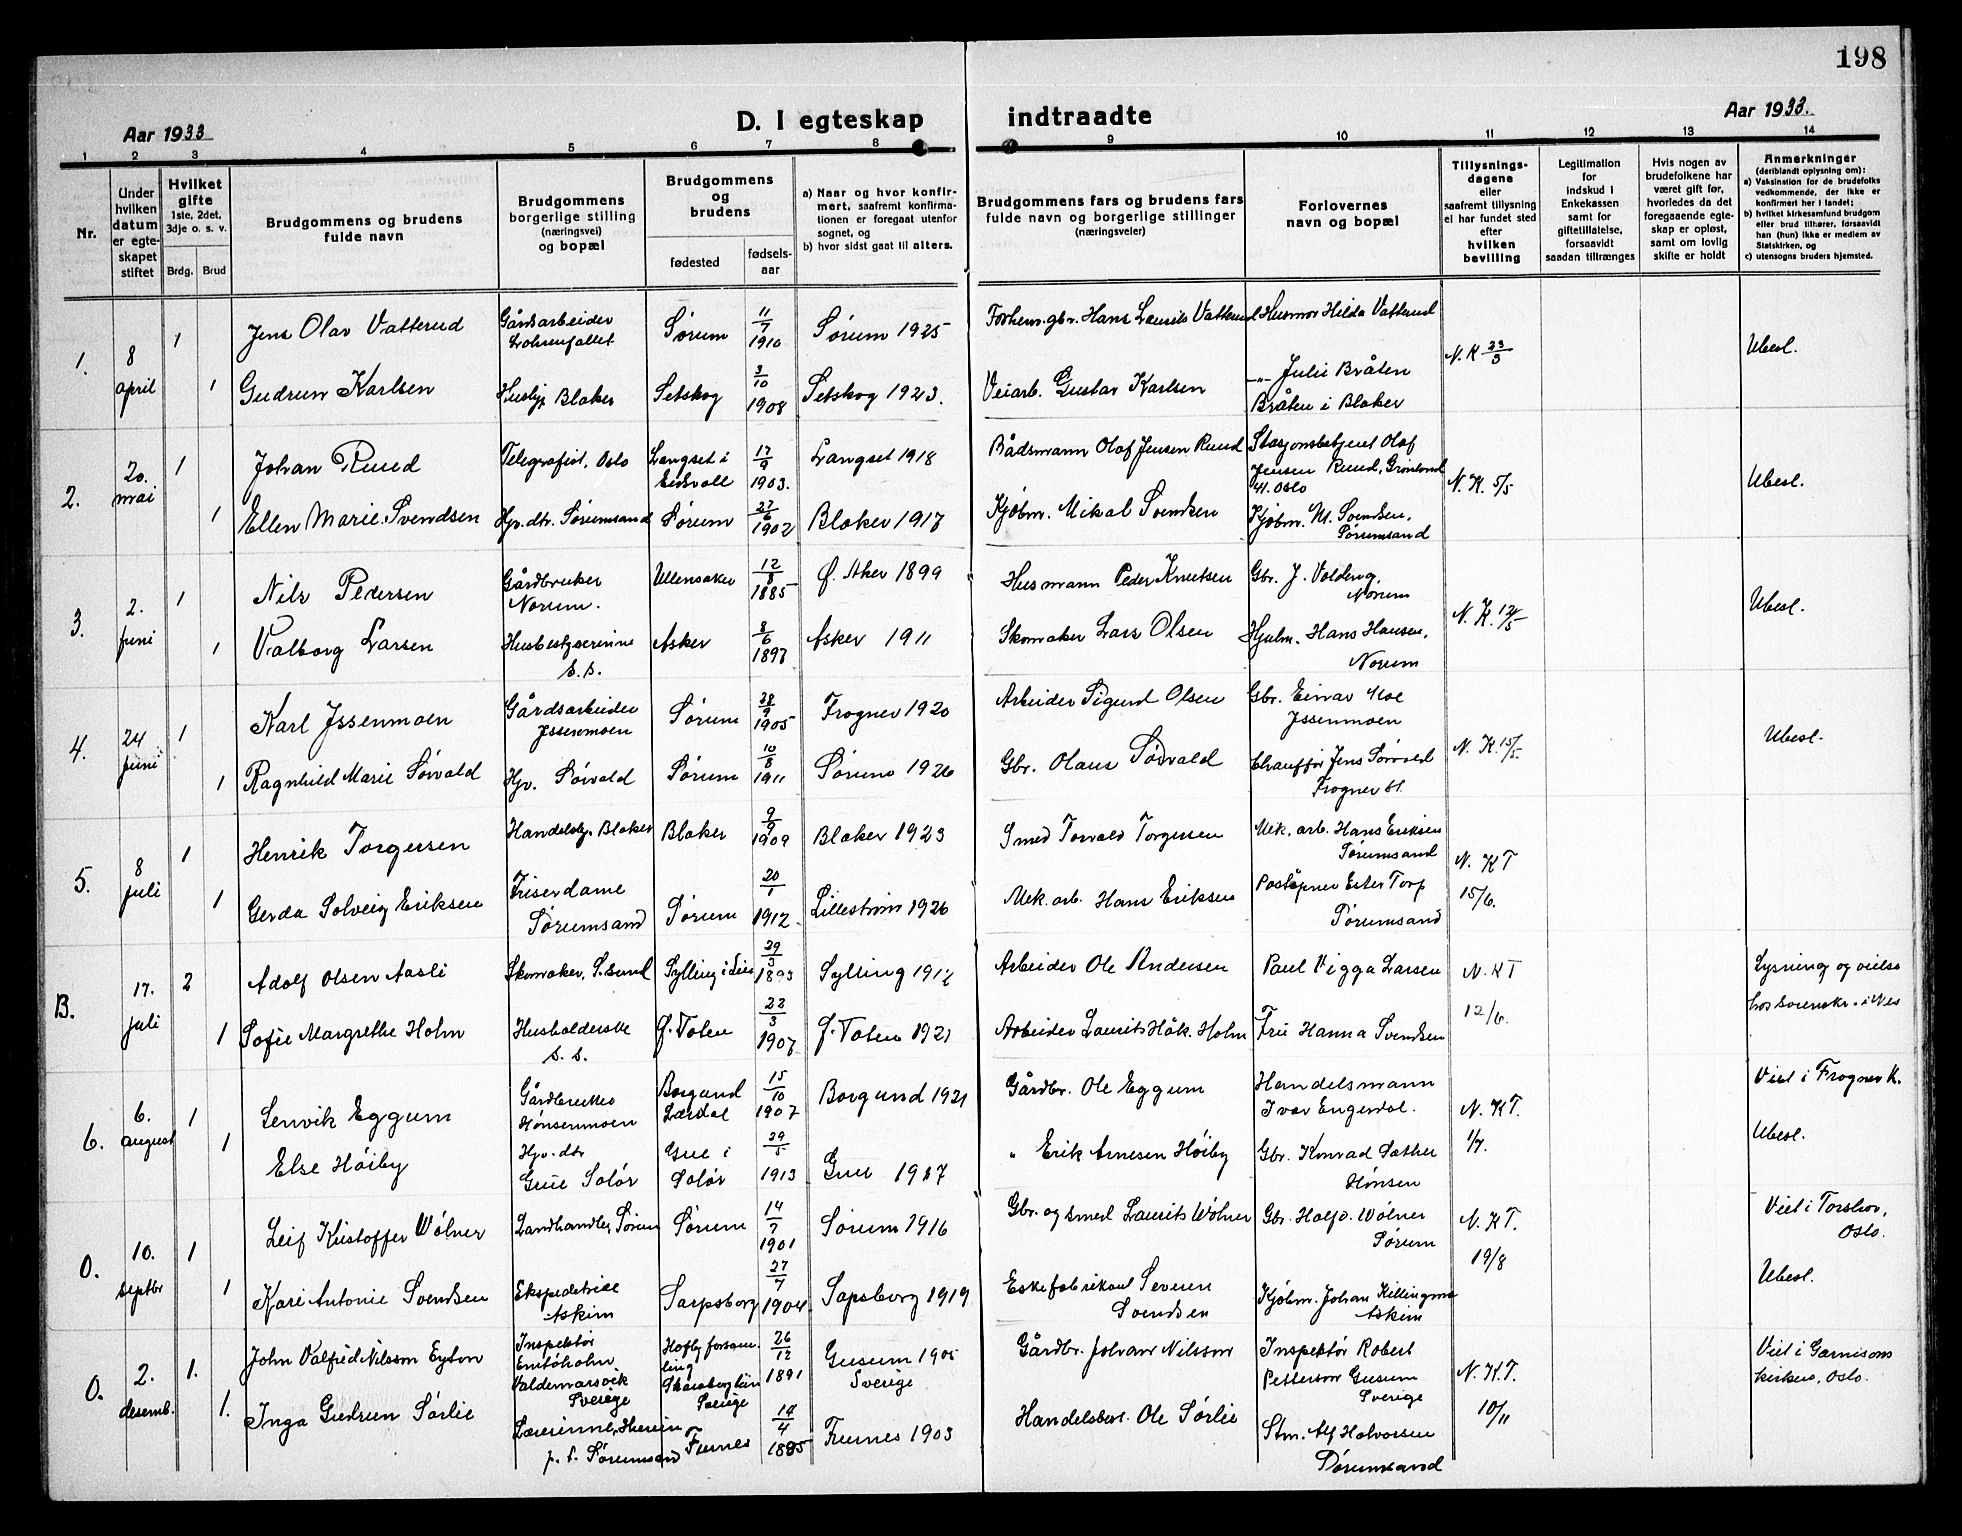 198
Aar 1933
D. I egteskap indtraadte
Aar 1933.
1 2 3 4 5 6 7 8 9 10 11 12 13 14
Nr.
Under hvilken datum er egteskapet stiftet
Hvilket gifte
1ste, 2det, 3dje o. s. v.
Brdg. Brud
Brudgommens og brudens fulde navn
Brudgommens borgerlige stilling (næringsvei) og bopæl
Brudgommens og brudens
fødested
fødsels-aar
a) Naar og hvor konfirmert, saafremt konfirmationen er foregaat utenfor sognet, og
b) hvor sidst gaat til alters.
Brudgommens fars og brudens fars fulde navn og borgerlige stillinger (næringsveier)
Forlovernes navn og bopæl
Tillysnings-dagene eller saafremt tillysning ei har fundet sted efter hvilken bevilling
Legitimation for indskud i Enkekassen samt for giftetillatelse, forsaavidt saadan tiltrænges
Hvis nogen av brudefolkene har været gift før, hvorledes da det foregaaende egteskap er opløst, samt om lovlig skifte er holdt
Anmerkninger (deriblandt oplysning om):
a) Vaksination for de brudefolks vedkommende, der ikke er konfirmert her i landet;
b) hvilket kirkesamfund brudgom eller brud tilhører, forsaavidt han (hun) ikke er medlem av Statskirken, og
c) utensogns bruders hjemsted.
1. 8 april 1 Jens Olav Vatterud Gårdsarbeider Sørum 11/7 1910 Sørum 1925 Hans Laurits Vatterud Husmor Hilda Vatterud N. K 23/3 Ubesl.
1 Gudrun Karlsen Blaker Setskog 3/10 1908 Setskog 1923. Veiarb. Gustav Karlsen -"- Julie Bråten
Bråten i Blaker
2. 20. mai 1 Johan Ruud Telegrafist, Oslo Langset i Eidsvoll 17/9 1903. Langset 1918 Bådsmann Olaf Jensen Ruud Stasjonsbetjent Olaf Jensen Ruud, Grønland 41. Oslo N. K. 5/5 Ubesl.
1 Ellen Marie Svendsen Hjv. dtr. Sørumsand Sørum 27/6 1902 Blaker 1917 Kjøbm. Mikal Svendsen Kjøbm. M. Svendsen, Sørumsand
3. 2. juni 1 Nils Pedersen Gårdbruker Norum. Ullensaker 12/8 1885 Ø. Aker 1899 Husmann Peder Knutsen Gbr. J. Voldeng, Norum N. K. 12/5 Ubesl.
1 Valborg Larsen Husbestyrerinne s. s. Asker 8/6 1897 Asker 1911 Skomaker Lars Olsen Hans Hansen, Norum
4. 24 juni 1 Karl Issenmoen Gårdsarbeider Issenmoen Sørum 28/9 1905 Frogner 1920 Arbeider Sigurd Olsen Gbr. Einar Moe Issenmoen N. K 15/5. Ubesl.
1 Ragnhild Marie Sørvald Hjv. Sørvald Sørum 10/8 1911 Sørum 1926 Gbr. Olaus Sørvald Chauffør Jens Sørvald Frogner st.
5. 8 juli 1 Henrik Torgersen Handelsbj. Blaker Blaker 9/9 1909 Blaker 1923 Smed Torvald Torgersen Mek. arb. Hans Eriksen Sørumsand N. K T 15/6.
1 Gerda Solveig Eriksen Friserdame Sørumsand Sørum 20/1 1912 Lillestrøm 1926 Mek. arb. Hans Eriksen Poståpner Ester Torp Sørumsand
B. 17. juli 2 Adolf Olsen Aasli Skomaker, S.sund Sylling i Lier 29/3 1893 Sylling 1912 Arbeider Ole Andersen Paul Vigga Larsen N. K T 12/6. Lysning og vielse hos sorenskr. i Nes
1 Sofie Margrethe Holm Husholderske s. s. Ø. Toten 22/3 1907 Ø. Toten 1921 Arbeider Laurits Håk. Holm Fru Hanna Svendsen
6. 6. august 1 Lenvik Eggum Gårdbruker Hønsenmoen Borgund Lærdal 15/10 1907 Borgund 1921 Gårdbr. Ole Eggum Handelsmann Ivar Engerdal. N. K T. 1/7. Viet i Frogner K.
1 Else Høiby Hjv. dtr Grue Solør Grue i Solør 29/5 1913 Grue 1927 " Erik Arnesen Høiby Gbr. Konrad Sæther Hønsen Ubesl.
O. 10. septbr 1 Leif Kristoffer Wølner Landhandler, Sørum Sørum 14/7 1901 Sørum 1916 Gbr. og smed Laurits Wølner Gbr. Halfd. Wølner Sørum N. K T. 19/8 Viet i Torshov, Oslo.
1 Kari Antonie Svendsen Ekspeditrise Askim Sarpsborg 27/7 1904 Sapsborg 1919 Eskefabrikant Severin Svendsen Kjøbm. Johan Killingmo Askim Ubesl.
O. 2. desemb. 1. John Valfrid Nilsson Eyton Inspektør Valdemarsvik Sverige Hofby forsamling Skaraborg län Sverige 26/12 1891 Gusum 1905 Sverige Gårdbr. Johan Nilsson Inspektør Robert Petterson Gusum Sverige N. K. T. 10/11 Viet i Garnisonskirken, Oslo.
1. Inga Gudrun Sørlie Lærerinne, p. t. Sørumsand Furnes 19/4 1885 Furnes 1903 Handelsbest. Ole Sørlie Stm. Alf Halvorsen Sørumsand